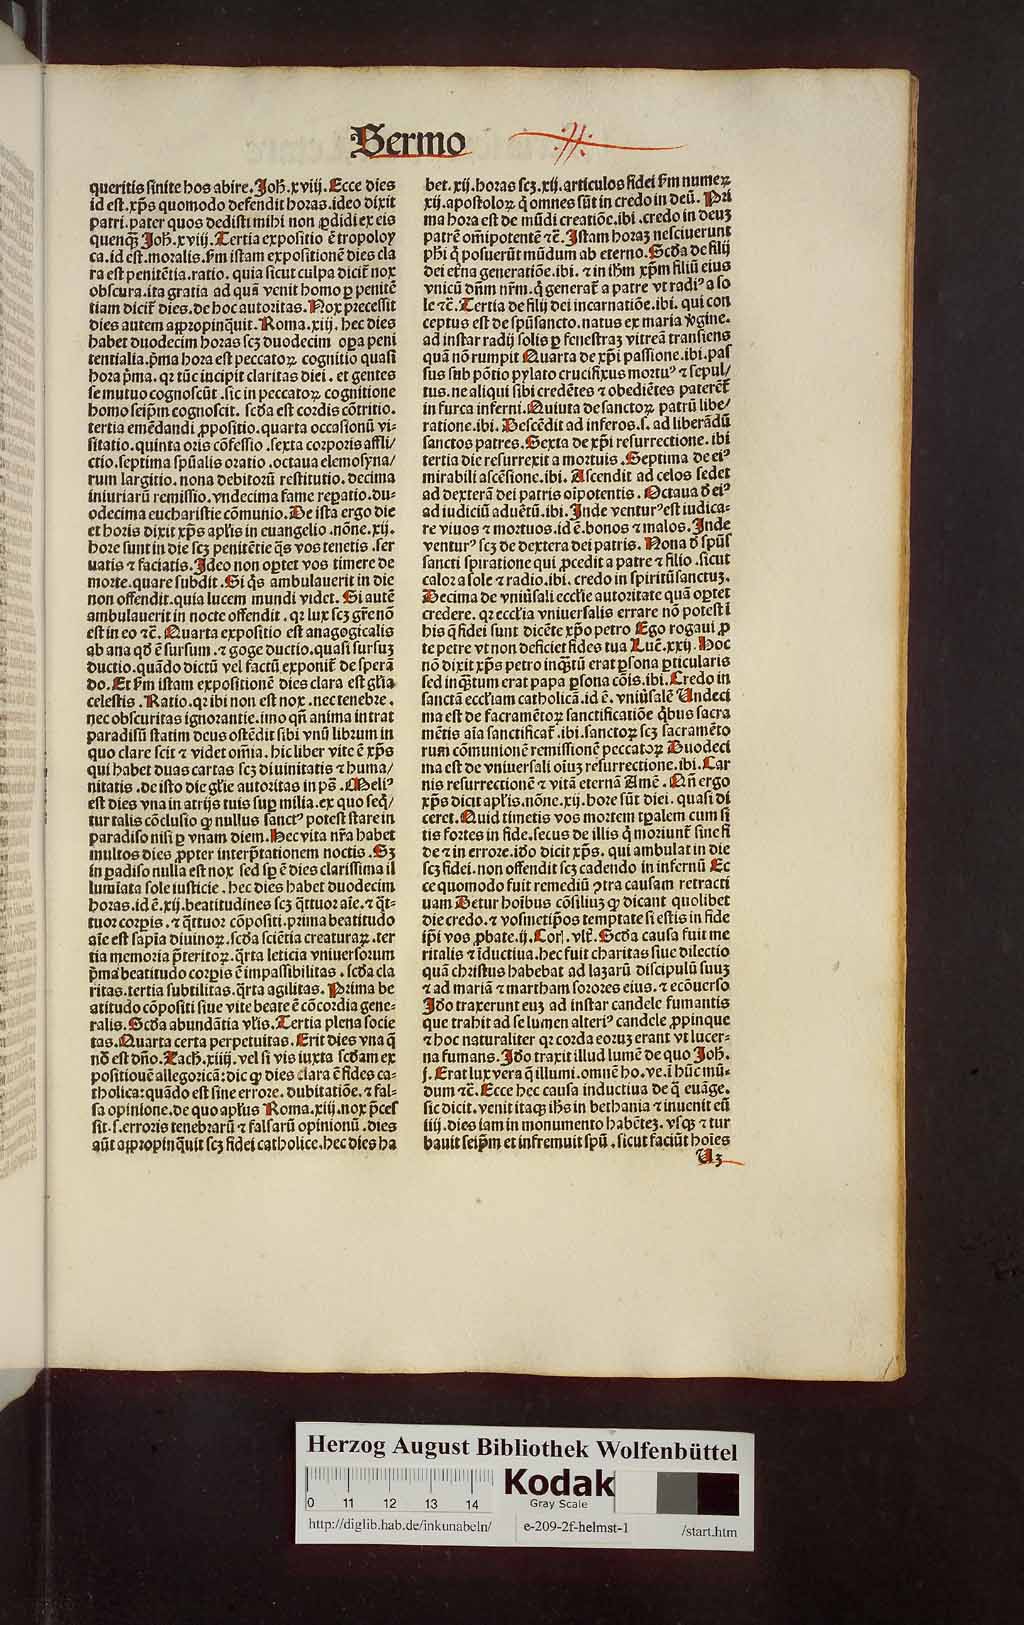 Sermo
queritis sinite hos abire. Joh̄. xviij. Ecce dies
id est. xp̄s quomodo defendit horas. ideo dixit
patri. pater quos dedisti mihi non ꝑdidi ex eis
quenqȝ Joh̄. xviij. Tertia expositio ē tropoloy
ca. id est. moralis. ẜm istam expositionē dies cla
ra est penitētia. ratio. quia sicut culpa dicit̄ nox
obscura. ita gratia ad quā venit homo ꝑ penitē
tiam dicit̄ dies. de hoc autoritas. Nox precessit
dies autem appropinq̄uit. Roma. xiij. hec dies
habet duodecim horas scȝ duodecim oꝑa peni
tentialia. p̄ma hora est peccatoꝝ cognitio quasi
hora p̄ma. qꝛ tūc incipit claritas diei. et gentes
se mutuo cognoscūt. sic in peccatoꝝ cognitione
homo seip̄m cognoscit. scd̄a est cordis cōtritio.
tertia emēdandi ꝓpositio. quarta occasionū vi-
sitatio. quinta oris cōfessio. sexta corporis affli/
ctio. septima spūalis oratio. octaua elemosyna/
rum largitio. nona debitorū restitutio. decima
iniuriarū remissio. vndecima fame reꝑatio. du-
odecima eucharistie cōmunio. De ista ergo die
et horis dixit xp̄s apl̄is in euangelio. nōne. xij.
hore sunt in die scȝ penitētie q̄s vos tenetis. ser
uatis ⁊ faciatis. Ideo non oꝑtet vos timere de
morte. quare subdit. Si q̄s ambulauerit in die
non offendit. quia lucem mundi videt. Si autē
ambulauerit in nocte offendit. qꝛ lux scȝ gr̄e nō
est in eo ⁊c̄. Quarta expositio est anagogicalis
ab ana qd̄ ē sursum. ⁊ goge ductio. quasi sursuȝ
ductio. quādo dictū vel factū exponit̄ de sperā
do. Et ẜm istam expositionē dies clara est gl̄ia
celestis. Ratio. qꝛ ibi non est nox. nec tenebre.
nec obscuritas ignorantie. imo qn̄ anima intrat
paradisū statim deus ostēdit sibi vnū librum in
quo clare scit ⁊ videt om̄ia. hic liber vite ē xp̄s
qui habet duas cartas scȝ diuinitatis ⁊ huma/
nitatis. de isto die gl̄ie autoritas in ps̄. Meliꝰ
est dies vna in atrijs tuis suꝑ milia. ex quo seq̄/
tur talis cōclusio ꝙ nullus sanctꝰ potest stare in
paradiso nisi ꝑ vnam diem. Hec vita nr̄a habet
multos dies ꝓpter interp̄tationem noctis. Sȝ
in ꝑadiso nulla est nox sed sꝑ ē dies clarissima il
lumīata sole iusticie. hec dies habet duodecim
horas. id ē. xij. beatitudines scȝ q̄ttuor aīe. ⁊ q̄t-
tuor corꝑis. ⁊ q̄ttuor cōpositi. prima beatitudo
aīe est sapīa diuinoꝝ. scd̄a sciētia creaturaꝝ. ter
tia memoria p̄teritoꝝ. q̄rta leticia vniuersorum
p̄ma beatitudo corꝑis ē impassibilitas. scd̄a cla
ritas. tertia subtilitas. q̄rta agilitas. Prima be
atitudo cōpositi siue vite beate ē cōcordia gene-
ralis. Scd̄a abundātia vl̄is. Tertia plena socie
tas. Quarta certa perpetuitas. Erit dies vna q̄
nō est dn̄o. Zach. xiiij. vel si vis iuxta scd̄am ex
positiouē allegoricā: dic ꝙ dies clara ē fides ca-
tholica: quādo est sine errore. dubitatiōe. ⁊ fal-
sa opinione. de quo apl̄us Roma. xiij. nox p̄ces
sit. s. erroris tenebrarū ⁊ falsarū opinionū. dies
aūt appropinq̄uit scȝ fidei catholice. hec dies ha
bet. xij. horas scȝ. xij. articulos fidei ẜm numeꝝ
xij. apostoloꝝ q̄ omnes sūt in credo in deū. Pri
ma hora est de mūdi creatiōe. ibi. credo in deuȝ
patrē om̄ipotentē ⁊c̄. Istam horaȝ nesciuerunt
ph̄i q̄ posuerūt mūdum ab eterno. Scd̄a de filij
dei et̄na generatiōe. ibi. ⁊ in ih̄m xp̄m filiū eius
vnicū dn̄m nr̄m. q̄ generat̄ a patre vt radiꝰ a so
le ⁊c̄. Tertia de filij dei incarnatiōe. ibi. qui con
ceptus est de spūsancto. natus ex maria v̄gine.
ad instar radij solis ꝑ fenestraȝ vitreā transiens
quā nō rumpit Quarta de xp̄i passione. ibi. pas
sus sub pōtio pylato crucifixus mortuꝰ ⁊ sepul/
tus. ne aliqui sibi credētes ⁊ obediētes paterēt̄
in furca inferni. Quiuta de sanctoꝝ patrū libe/
ratione. ibi. Descēdit ad inferos. s. ad liberādū
sanctos patres. Sexta de xp̄i resurrectione. ibi
tertia die resurrexit a mortuis. Septima de eiꝰ
mirabili ascēsione. ibi. Ascendit ad celos sedet
ad dexterā dei patris oīpotentis. Octaua d̄ eiꝰ
ad iudiciū aduētū. ibi. Inde venturꝰ est iudica-
re viuos ⁊ mortuos. id ē. bonos ⁊ malos. Inde
venturꝰ scȝ de dextera dei patris. Nona d̄ spūs
sancti spiratione qui ꝓcedit a patre ⁊ filio. sicut
calor a sole ⁊ radio. ibi. credo in spiritūsanctuȝ.
Decima de vniūsali eccl̄ie autoritate quā oꝑtet
credere. qꝛ eccl̄ia vniuersalis errare nō potest ī
his q̄ fidei sunt dicēte xp̄o petro Ego rogaui ꝓ
te petre vt non deficiet fides tua Luc̄. xxij. Hoc
nō dixit xp̄s petro inq̄ȝtū erat ꝑsona ꝑticularis
sed inq̄ȝtum erat papa ꝑsona cōis. ibi. Credo in
sanctā eccl̄iam catholicā. id ē. vniūsalē Undeci
ma est de sacramētoꝝ sanctificatiōe q̄bus sacra
mētis aīa sanctificat̄. ibi. sanctoꝝ scȝ sacramēto
rum cōmunionē remissionē peccatoꝝ Duodeci
ma est de vniuersali oīuȝ resurrectione. ibi. Car
nis resurrectionē ⁊ vitā eternā Amē. Qn̄ ergo
xp̄s dicit apl̄is. nōne. xij. hore sūt diei. quasi di
ceret. Quid timetis vos mortem tꝑalem cum si
tis fortes in fide. secus de illis q̄ moriunt̄ sine fi
de ⁊ in errore. id̄o dicit xp̄s. qui ambulat in die
scȝ fidei. non offendit scȝ cadendo in infernū Ec
ce quomodo fuit remediū ꝯtra causam retracti
uam Detur hoībus cōsiliuȝ ꝙ dicant quolibet
die credo. ⁊ vosmetip̄os temptate si estis in fide
ip̄i vos ꝓbate. ij. Cor̄. vlt̄. Scd̄a causa fuit me
ritalis ⁊ īductiua. hec fuit charitas siue dilectio
quā christus habebat ad lazarū discipulū suuȝ
⁊ ad mariā ⁊ martham sorores eius. ⁊ ecōuerso
Id̄o traxerunt euȝ ad instar candele fumantis
que trahit ad se lumen alteriꝰ candele ꝓpinque
⁊ hoc naturaliter qꝛ corda eoruȝ erant vt lucer-
na fumans. Id̄o traxit illud lumē de quo Joh̄.
j. Erat lux vera q̄ illumi. omnē ho. ve. ī hūc mū-
dum ⁊c̄. Ecce hec causa inductiua de q̄ euāge.
sic dicit. venit itaqȝ ih̄s in bethania ⁊ inuenit eū
iiij. dies iam in monumento habēteȝ. vsqȝ ⁊ tur
bauit seip̄m et infremuit spū. sicut faciūt hoīes
Uȝ
Herzog August Bibliothek Wolfenbüttel
0 11 12 13 14
Kodak
Gray Scale
http://diglib.hab.de/inkunabeln/ e-209-2f-helmst-1 /start.htm